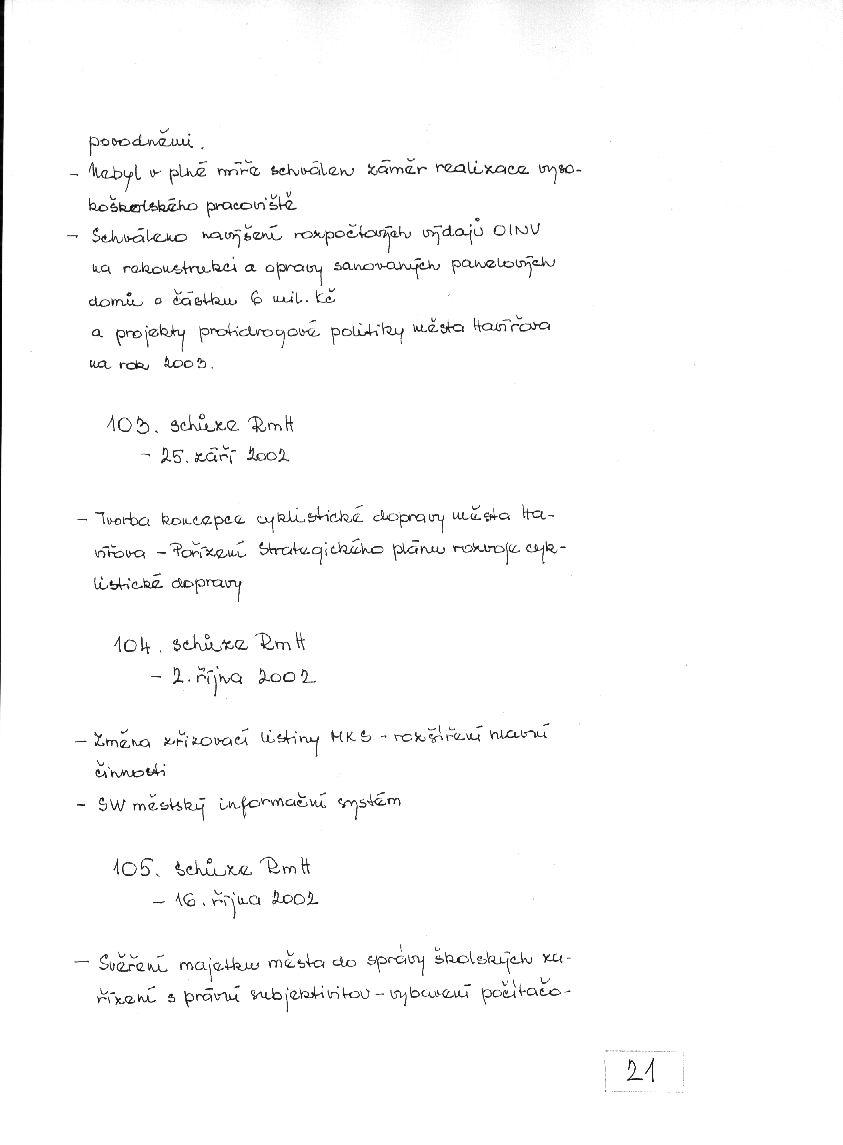 povodněmi.
- Nebyl v plné míře schválen záměr realizace vyso-
koškolského pracoviště
- Schváleno navýšení rozpočtových výdajů OINV
na rekonstrukci a opravy sanovaných panelových
domů o částku 6 mil. Kč
a projekty protidrogové politiky města Havířova
na rok 2003.
103. schůze RmH
- 25. září 2002
- Tvorba koncepce cyklistické dopravy města Ha-
vířova - Pořízení Strategického plánu rozvoje cyk-
listické dopravy
104. schůze RmH
- 2. října 2002
- Změna zřizovací listiny MKS - rozšíření hlavní
činnosti
- SW městský informační systém
105. schůze RmH
- 16. října 2002
- Svěření majetku města do správy školských za-
řízení s právní subjektivitou - vybavení počítačo-
21